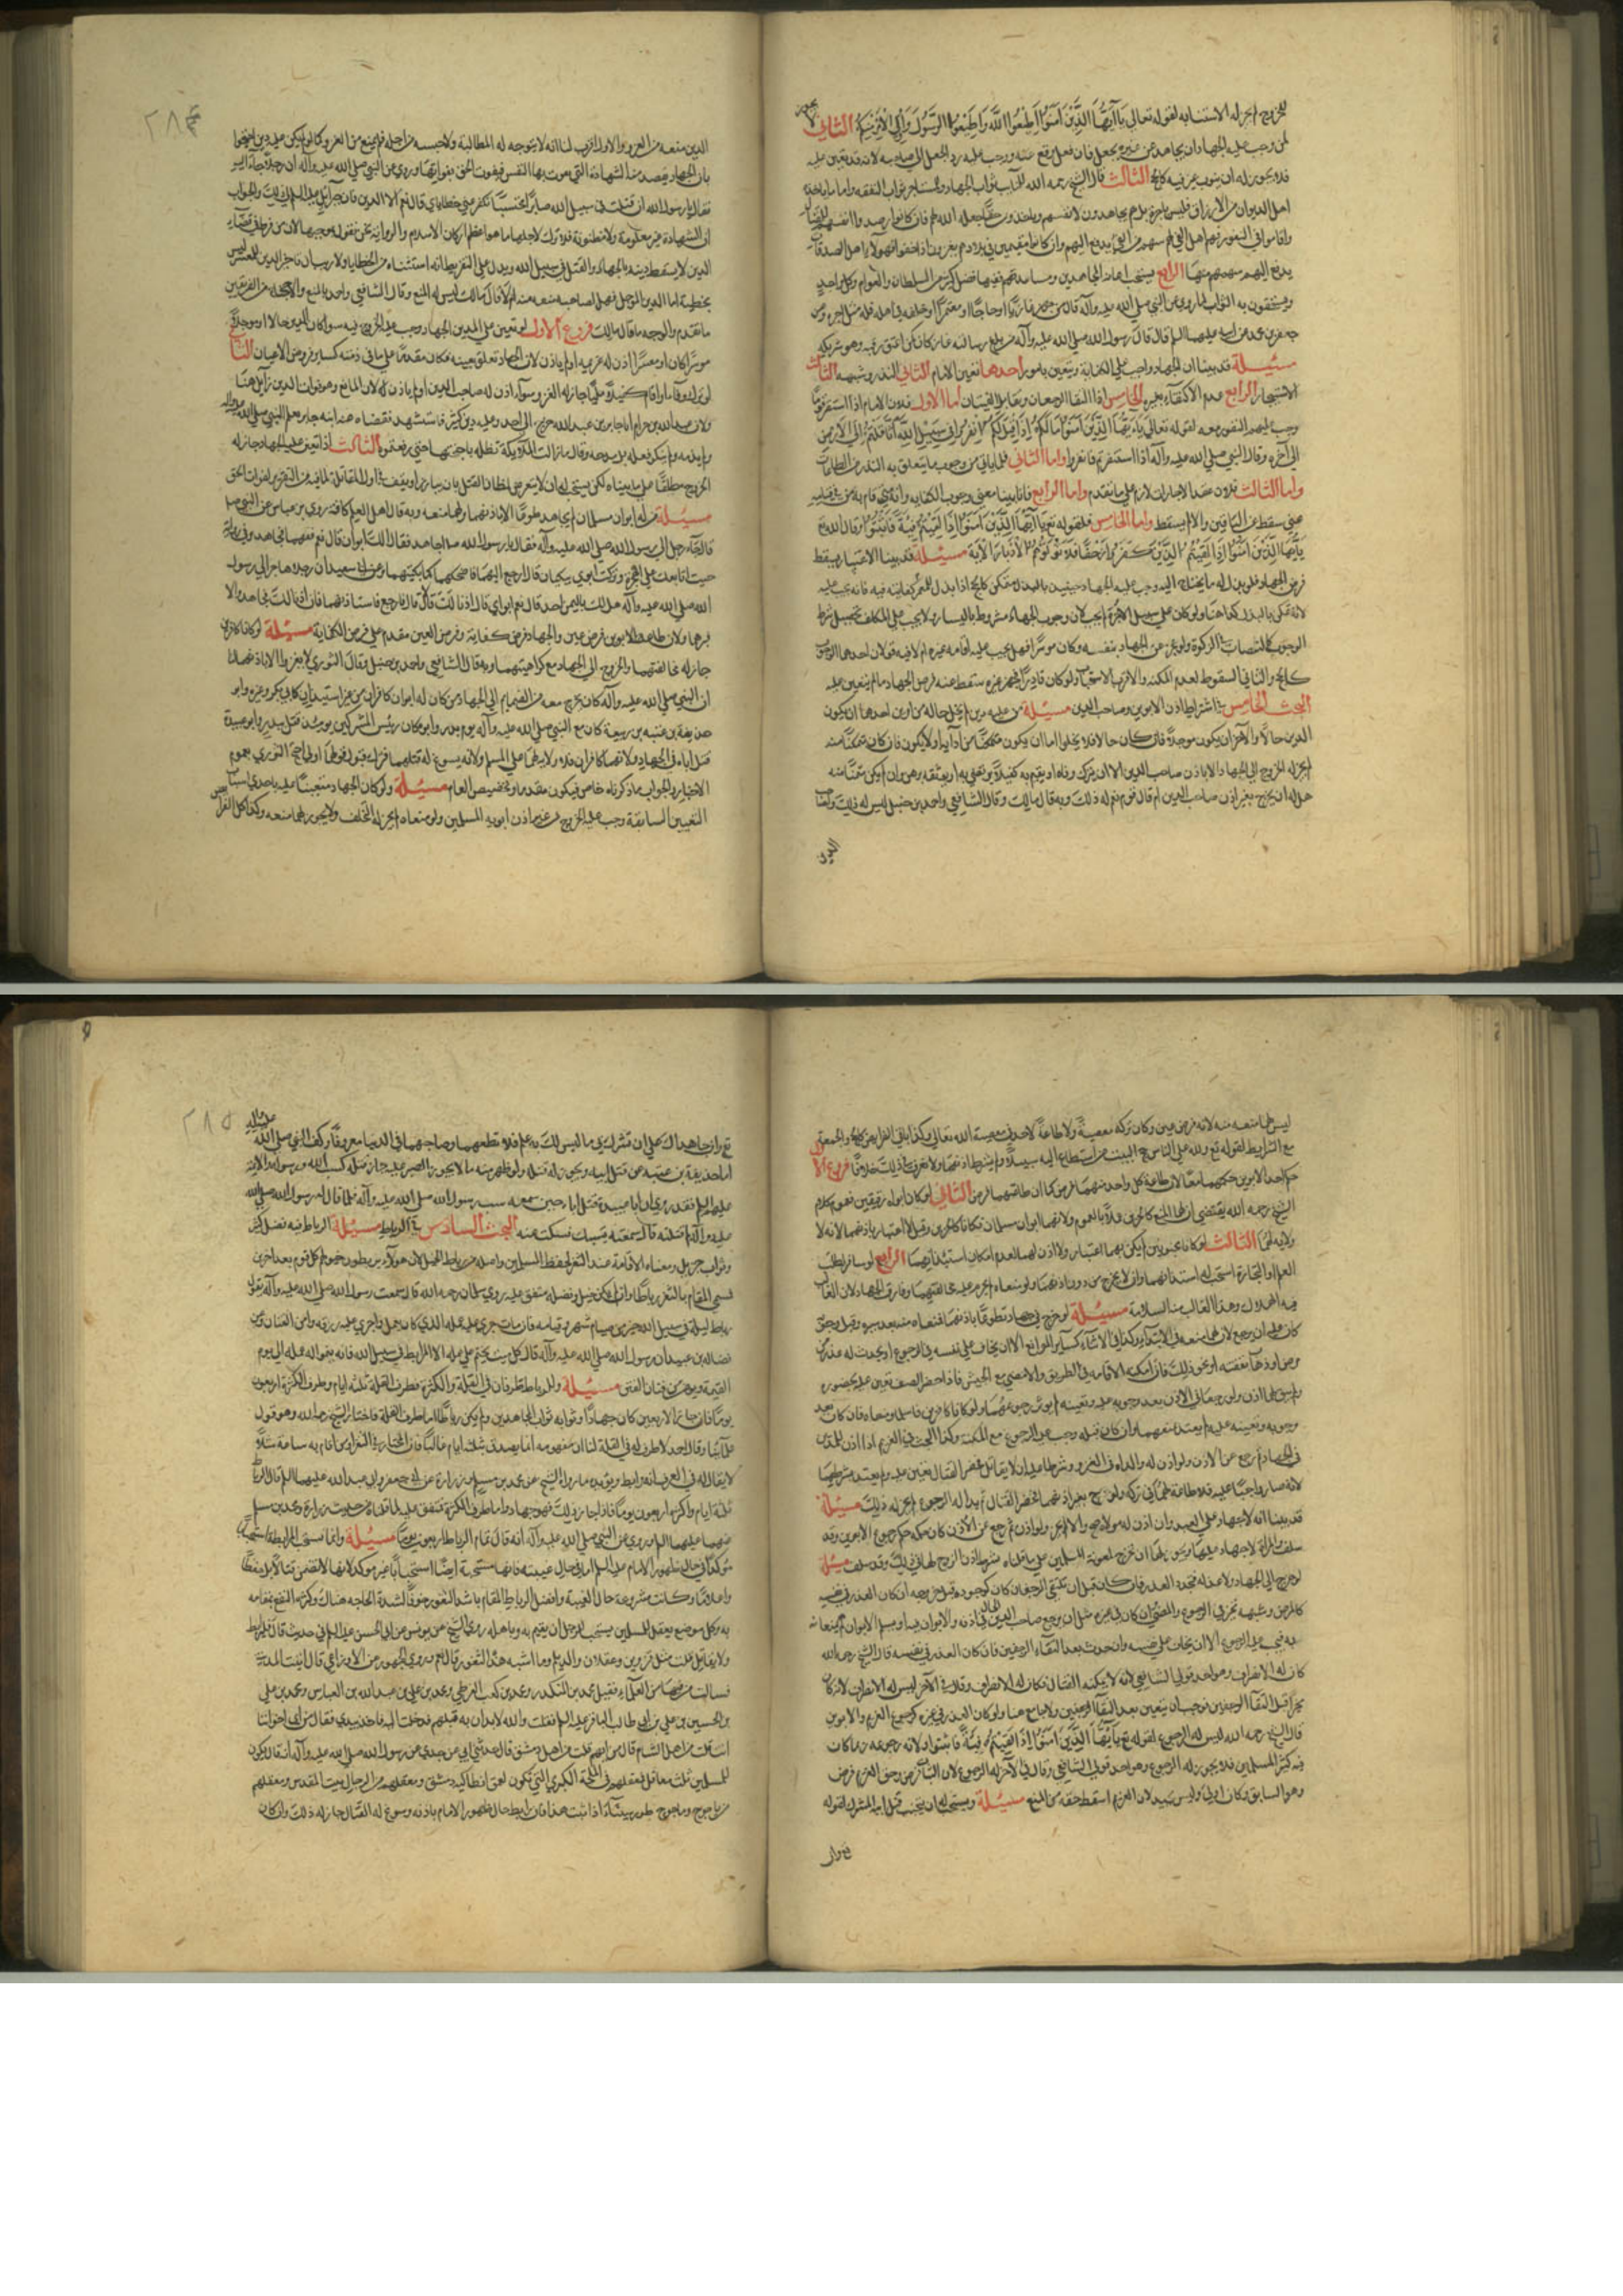 للخروج لم يجز له الاستنابة لقوله تعالى يَا أَيُّهَا الَّذِينَ آمَنُوا أَطِيعُوا اللَّهَ وَأَطِيعُوا الرَّسُولَ وَأُولِي الْأَمْرِ مِنْكُمْ الثاني لا يجوز
لمن وجب عليه الجهاد ان يجاهد عن غيره بجعل فان فعل وقع عنه ووجب عليه رد الجعل الى صاحبه لانه قد تعين عليه
فلا يجوز له ان ينوب عن غيره كالحج الثالث قال الشيخ رحمه الله للنائب ثواب الجهاد وللمستاجر ثواب النفقة واما ما ياخذه
اهل الديوان من الارزاق فليس باجرة بل هم يجاهدون لانفسهم وياخذون حقا جعله الله لهم فان كانوا ارصدوا انفسهم للقتال
واقاموا في الثغور فهم اهل الفي لهم سهم من الفي يدفع اليهم وان كانوا مقيمين في بلادهم يغزون اذا خفوا فهولاء اهل الصدقات
يدفع اليهم سهمهم منها الرابع يستحب اعانة المجاهدين ومساعدتهم ففيها فضل كثير من السلطان والعوام وكل احد
ويستحقون به الثواب لما روي عن النبي صلى الله عليه وآله قال من جهز غازيا او حاجا او معتمرا او خلفه في اهله فله مثل اجره وعن
جعفر بن محمد عن ابيه عليهما السلام قال قال رسول الله صلى الله عليه وآله من بلغ رسالة غاز كان كمن اعتق رقبة وهو شريكه
مسئلة قد بينا ان الجهاد واجب على الكفاية ويتعين بامور احدها تعيين الامام الثاني النذر وشبهه الثالث
الاستيجار الرابع عدم الاكتفاء بغيره الخامس اذا التقى الزحفان وتقابل الفئتان اما الاول فلان الامام اذا استنفر قوما
وجب عليهم النفور معه لقوله تعالى يَا أَيُّهَا الَّذِينَ آمَنُوا مَا لَكُمْ إِذَا قِيلَ لَكُمُ انْفِرُوا فِي سَبِيلِ اللَّهِ اثَّاقَلْتُمْ إِلَى الْأَرْضِ
الى آخره وقال النبي صلى الله عليه وآله اذا استنفرتم فانفروا واما الثاني فلما ياتي من وجوب ما يتعلق به النذر من الطاعات
واما الثالث فلان عقد الاجارات لازم على ما تقدم واما الرابع فلانا بينا معنى وجوب الكفاية وانه متى قام به من فيه كفاية
سقط عن الباقين والا لم يسقط واما الخامس فلقوله تع يَا أَيُّهَا الَّذِينَ آمَنُوا إِذَا لَقِيتُمْ فِئَةً فَاثْبُتُوا وقال الله تع
يَا أَيُّهَا الَّذِينَ آمَنُوا إِذَا لَقِيتُمُ الَّذِينَ كَفَرُوا زَحْفًا فَلَا تُوَلُّوهُمُ الْأَدْبَارَ الآية مسئلة قد بينا ان الاعسار يسقط
فرض الجهاد فلو بذل له ما يحتاج اليه وجب عليه الجهاد حينئذ بالبذل متمكن كالحج اذا بذل للمعسر كفايته فيه فانه يجب عليه
لانه تمكن بالبذل كما هنا ولو كان على سبيل الاجرة لم يجب لان وجوب الجهاد مشروط باليسار ولا يجب على المكلف تحصيل شرط
الوجوب كالنصاب في الزكوة ولو عجز عن الجهاد بنفسه وكان موسرا فهل يجب عليه اقامة غيره ام لا فيه قولان احدهما الوجوب
كالحج والثاني السقوط لعدم المكنة والاقرب الاستحباب ولو كان قادرا فجهز غيره سقط عنه فرض الجهاد ما لم يتعين عليه
البحث الخامس في اشتراط اذن الابوين وصاحب الدين مسئلة من عليه دين لم يخل حاله من امرين احدهما ان يكون
الدين حالا والآخر ان يكون موجلا فان كان حالا فلا يخلوا اما ان يكون متمكنا من ادائه او لا يكون فان كان متمكنا منه
لم يجز له الخروج الى الجهاد الا باذن صاحب الدين الا ان يترك وفاء او يقيم به كفيلا
هل له ان يخرج بغير اذن صاحب الدين ام قال قوم نعم له ذلك وبه قال مالك وقال الشافعي واحمد بن حنبل ليس له ذلك ولصاحب
الدين
الدين منعه من الغزو والاول اقرب لنا انه لا يتوجه له المطالبة ولا حبسه من اجله فلم يمنع من الغزو كما لو لم يكن عليه دين احتجوا
بان الجهاد يقصد منه الشهادة التي تفوت بها النفس فيفوت الحق بفواتها وروي عن النبي صلى الله عليه وآله ان رجلا جاء اليه
فقال يا رسول الله ان قتلت في سبيل الله صابرا محتسبا تكفر عني خطاياي قال نعم الا الدين فان جبرائيل عليه السلام قال لي ذلك والجواب
ان الشهادة غير معلومة ولا مظنونة فلا يترك لاجلها ما هو اعظم اركان الاسلام والرواية نحن نقول بموجبها
الدين لا يسقط دينه بالجهاد والقتل في سبيل الله
ما تقدم والوجه ما قال مالك فروع الاول لو تعين على المدين الجهاد وجب عليه الخروج فيه سواء كان الدين حالا او موجلا
موسرا كان او معسرا اذن له غريمه او لم ياذن لان الجهاد تعلق بعينه فكان مقدما على ما في ذمته كساير فروض الاعيان الثاني
لو ترك وفاء او اقام كفيلا مليا جاز له الغزو سواء اذن له صاحب الدين او لم ياذن له لان المانع وهو فوات الدين زايل هنا
ولان عبد الله بن حرام ابا جابر بن عبد الله خرج الى احد وعليه دين كثير فاستشهد فقضاه عنه ابنه جابر بعلم النبي صلى الله عليه وآله
ولم يذمه ولم ينكر فعله بل مدحه وقال ما زالت الملائكة تظله باجنحتها حتى رفعتموه الثالث اذا تعين عليه الجهاد جاز له
الخروج مطلقا على ما بيناه لكن يستحب له ان لا يتعرض لمظان القتل بان يبارز او يقف في اول المقاتلة لما فيه من التغرير لفوات الحق
مسئلة من له ابوان مسلمان لم يجاهد طوعا الا باذنهما ولهما منعه وبه قال اهل العلم كافة روى بن عباس عن النبي صلى
قال جاء رجل الى رسول الله صلى الله عليه وآله فقال يا رسول الله اجاهد فقال الك ابوان قال نعم ففيهما فجاهد وفي رواية
جئت ابايعك على الهجرة وتركت ابوي يبكيان قال ارجع اليهما فاضحكهما كما ابكيتهما وعن ابي سعيد ان رجلا هاجر الى رسول
الله صلى الله عليه وآله هل لك باليمن احد قال نعم ابواي قال اذنا لك قال لا قال فارجع فاستاذنهما فان اذنا لك فجاهد والا
فبرهما ولان طاعة الابوين فرض عين والجهاد فرض كفاية وفرض العين مقدم على فرض الكفاية مسئلة لو كانا كافرين
جاز له مخالفتهما والخروج الى الجهاد مع كراهيتهما وبه قال الشافعي واحمد بن حنبل وقال الثوري لا يغزوا الا باذنهما لنا
ان النبي صلى الله عليه وآله كان يخرج معه من الصحابة الى الجهاد من كان له ابوان كافران من غير استيذان كابي بكر وغيره وابو
حذيفة بن عتبة بن ربيعة كان مع النبي صلى الله عليه وآله يوم بدر وابوه كان رئيس المشركين يومئذ قتل ببدر وابو عبيدة
قتل اباه في الجهاد ولانهما كافران فلا ولاية لهما على المسلم
الاخبار والجواب ما ذكرناه خاص فيكون مقدما وتخصيص العام مسئلة ولو كان الجهاد متعينا عليه باحدى اسباب
التعيين السابقة وجب عليه الخروج من غير اذن ابويه المسلمين ولو منعاه لم يجز له التخلف ولا يجوز لهما منعه وكذا كل الفرائض
٢٨٤
ليس لهما منعه منه لانه فرض عين وكان تركه معصية ولا طاعة لاحد في معصية الله تعالى وكذا باقي الفرايض كالحج والجمعة
مع الشرايط لقوله تع ولله على الناس حج البيت من استطاع اليه سبيلا ولم يشترط اذنهما ولا نعرف في ذلك خلافا فروع الاول
حكم احد الابوين حكمهما معا لان طاعة كل واحد منهما فرض كما ان طاعتهما فرض الثاني لو كان ابواه رقيقين فعموم كلام
الشيخ رحمه الله يقتضي ان لهما المنع كالحرين عملا بالعموم ولانهما ابوان مسلمان فكانا كالحرين وقيل لا اعتبار باذنهما لانه لا
ولاية لهما الثالث لو كانا مجنونين لم يكن بهما اعتبار ولا اذن لهما لعدم امكان استيذانهما الرابع لو سافر لطلب
العلم او التجارة استحب له استيذانهما وان لا يخرج من دون اذنهما ولو منعاه لم يحرم عليه مخالفتهما وفارق الجهاد لان الغالب
فيه الهلاك وهذا الغالب فيه السلامة مسئلة لو خرج في جهاد تطوعا باذنهما فمنعاه منه بعد سيره وقبل وجوبه
كان عليه ان يرجع لان لهما منعه في الابتداء فكذا في الاثناء كساير الموانع الا ان يخاف على نفسه في الرجوع او يحدث له عذر
مرض او ذهاب نفقة او نحو ذلك فان امكنه الاقامة في الطريق والا مضى مع الجيش فاذا حضر الصف تعين عليه بحضوره
وجوبه وتعينه عليه لم يعتد بمنعهما وان كان قبله وجب عليه الرجوع مع المكنة وكذا البحث في الغريم اذا اذن للمدين
في الجهاد ثم رجع عن الاذن ولو اذن له والداه في الغزو وشرطا عليه ان لا يقاتل فحضر القتال تعين عليه ولم يعتد بشرطهما
لانه صار واجبا عليه فلا طاعة لهما في تركه ولو خرج بغير اذنهما فحضر القتال ثم بدا له الرجوع لم يجز له ذلك مسئلة
قد بينا انه لا جهاد على العبد وان اذن له مولاه صح والا لم يجز ولو اذن ثم رجع عن الاذن كان حكمه حكم رجوع الابوين وقد
سلف والمراة لا جهاد عليها
لو خرج الى الجهاد ولا عذر له فتجدد العذر فان كان قبل ان يلتقي الزحفان
كالمرض وشبهه تخير في الرجوع والمضي
به فيجب عليه الرجوع الا ان يخاف على نفسه وان حدث بعد التقاء الزحفين فان كان العذر في نفسه قال الشيخ رحمه الله
كان له الانصراف وهو احد قولي الشافعي لانه لا يمكنه القتال فكان له الانصراف وقال في الآخر ليس له الانصراف لانه كان
مخيرا قبل التقاء الزحفين فوجب ان يتعين بعد التقاء الزحفين ولا جامع هنا ولو كان العذر في غيره كرجوع الغريم والابوين
قال الشيخ رحمه الله ليس له الرجوع لقوله تع يَا أَيُّهَا الَّذِينَ آمَنُوا إِذَا لَقِيتُمْ فِئَةً فَاثْبُتُوا ولانه رجوعه ربما كان
فيه كسر المسلمين فلا يجوز له الرجوع وهو احد قولي الشافعي وقال في الآخر له الرجوع لان الثبات فرض وحق الغريم فرض
وهو السابق وكان اولى وليس بجيد لان الغريم اسقط حقه من المنع مسئلة ويستحب له ان يجتنب قتل ابيه المشرك لقوله
تع وان
تع وان جاهداك على ان تشرك بي ما ليس لك به علم فلا تطعهما وصاحبهما في الدنيا معروفا وكف النبي صلى الله عليه وآله
ابا حذيفة بن عتبة عن قتل ابيه ويجوز له قتله ولو ظهر منه ما لا يجوز الصبر عليه جاز قتله كسب الله ورسوله او الائمة
عليهم السلام فقد روي ان ابا عبيدة قتل اباه حين سمعه يسب رسول الله صلى الله عليه وآله فلما قال له رسول الله صلى الله
عليه وآله لم قتلته قال سمعته يسبك فسكت عنه البحث السادس في الرباط مسئلة الرباط فيه فضل كثير
وثواب جزيل ومعناه الاقامة عند الثغر لحفظ المسلمين واصله من رباط الخيل لان هولاء يربطون خيولهم كل قوم بعد اخرى
فسمي المقام بالثغر رباطا وان لم يكن خيل وفضله متفق عليه روى سلمان رحمه الله قال سمعت رسول الله صلى الله عليه وآله يقول
رباط ليلة في سبيل الله خير من صيام شهر وقيامه فان مات جرى عليه عمله الذي كان يعمل واجرى عليه رزقه وامن الفتان وعن
فضالة بن عبيد ان رسول الله صلى الله عليه وآله قال كل ميت يختم على عمله الا المرابط في سبيل الله فانه ينمو له عمله الى يوم
القيمة ويومن من فتان القبر مسئلة وللرباط طرفان في القلة والكثرة فطرف القلة ثلثة ايام وطرف الكثرة اربعون
يوما فان جاز الاربعين كان جهادا وثوابه ثواب المجاهدين ولم يكن رباطا اما طرف القلة فاختاره الشيخ رحمه الله وهو قول
علمائنا وقال احمد لا طرف له في القلة لنا ان مفهومه انما يصدق بثلثة ايام غالبا
لا يقال له في العرف انه مرابط ويؤيده ما رواه الشيخ عن محمد بن مسلم وزرارة عن ابي جعفر وابي عبد الله عليهما السلام قال الرباط
ثلثة ايام واكثره اربعون يوما فاذا جاز ذلك فهو جهاد واما طرف الكثرة فمتفق عليه لما تقدم من حديث زرارة ومحمد بن مسلم
عنهما عليهما السلام وروي عن النبي صلى الله عليه وآله انه قال تمام الرباط اربعون يوما مسئلة وانما تستحب المرابطة استحبابا
موكدا في حال ظهور الامام عليه السلام اما في حال غيبته فانها مستحبة ايضا استحبابا غير موكد لانها لا تتضمن قتالا بل حفظا
واعلاما وكانت مشروعة حال الغيبة وافضل الرباط المقام باشد الثغور خوفا لشدة الحاجة هناك وكثرة النفع بمقامه
به وكل موضع يعقل للمسلمين يستحب للرجل ان يقيم به وباهله روى الشيخ عن يونس عن ابي الحسن عليه السلام في حديث قال فليرابط
ولا يقاتل قلت مثل قزوين وعسقلان والديلم وما اشبه هذه الثغور قال نعم وروى الجمهور عن الاوزاعي قال اتيت المدينة
فسالت من فيها من العلماء فقيل محمد بن المنكدر ومحمد بن كعب القرظي ومحمد بن علي بن عبد الله بن العباس ومحمد بن علي
بن الحسين بن علي بن ابي طالب الباقر عليه السلام فقلت والله لابدان به قبلهم فدخلت اليه فاخذ بيدي فقال من اي اخواننا
انت قلت من اهل الشام قال من ايهم قلت من اهل دمشق قال حدثني ابي عن جدي عن رسول الله صلى الله عليه وآله انه قال يكون
للمسلمين ثلث معاقل فمعقلهم في الملحمة الكبرى التي تكون بعمق انطاكية دمشق ومعقلهم من الدجال بيت المقدس ومعقلهم
من ياجوج وماجوج طور سيناء اذا ثبت هذا فان رابط حال ظهور الامام باذنه وسوغ له القتال جاز له ذلك وان كان
٢٨٥